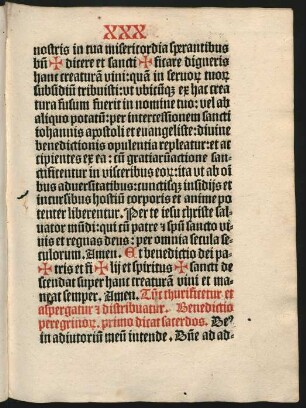 XXX
nostris in tua misericordia sperantibus
bn̄ ✠ dicere et sancti ✠ ficare digneris
hanc creaturā vini: quā in seruoꝝ tuoꝝ
subsidiū tribuisti: vt vbicūqꝫ ex hac crea
tura fusum fuerit in nomine tuo: vel ab
aliquo potatū: per intercessionem sancti
iohannis apostoli et euangeliste: diuine
benedictionis opulentia repleatur: et ac
cipientes ex ea: cū gratiaꝝactione san-
ctificentur in visceribus eoꝝ: ita vt ab oī
bus aduersitatibus: cunctisqꝫ insidijs et
incursibus hostiū corporis et anime po
tenter liberentur. Per te iesu christe sal-
uator mūdi: qui cū patre ⁊ spū sancto vi-
uis et regnas deus: per omnia secula se
culorum. Amen. Et benedictio dei pa-
✠ tris et fi ✠ lij et spiritus ✠ sancti de
scendat super hanc creaturā vini et ma-
neat semper. Amen. Tūc thurificetur et
aspergatur ⁊ distribuatur. Benedictio
peregrinoꝝ. primo dicat sacerdos.
in adiutoriū meū intende. Dn̄e ad ad-